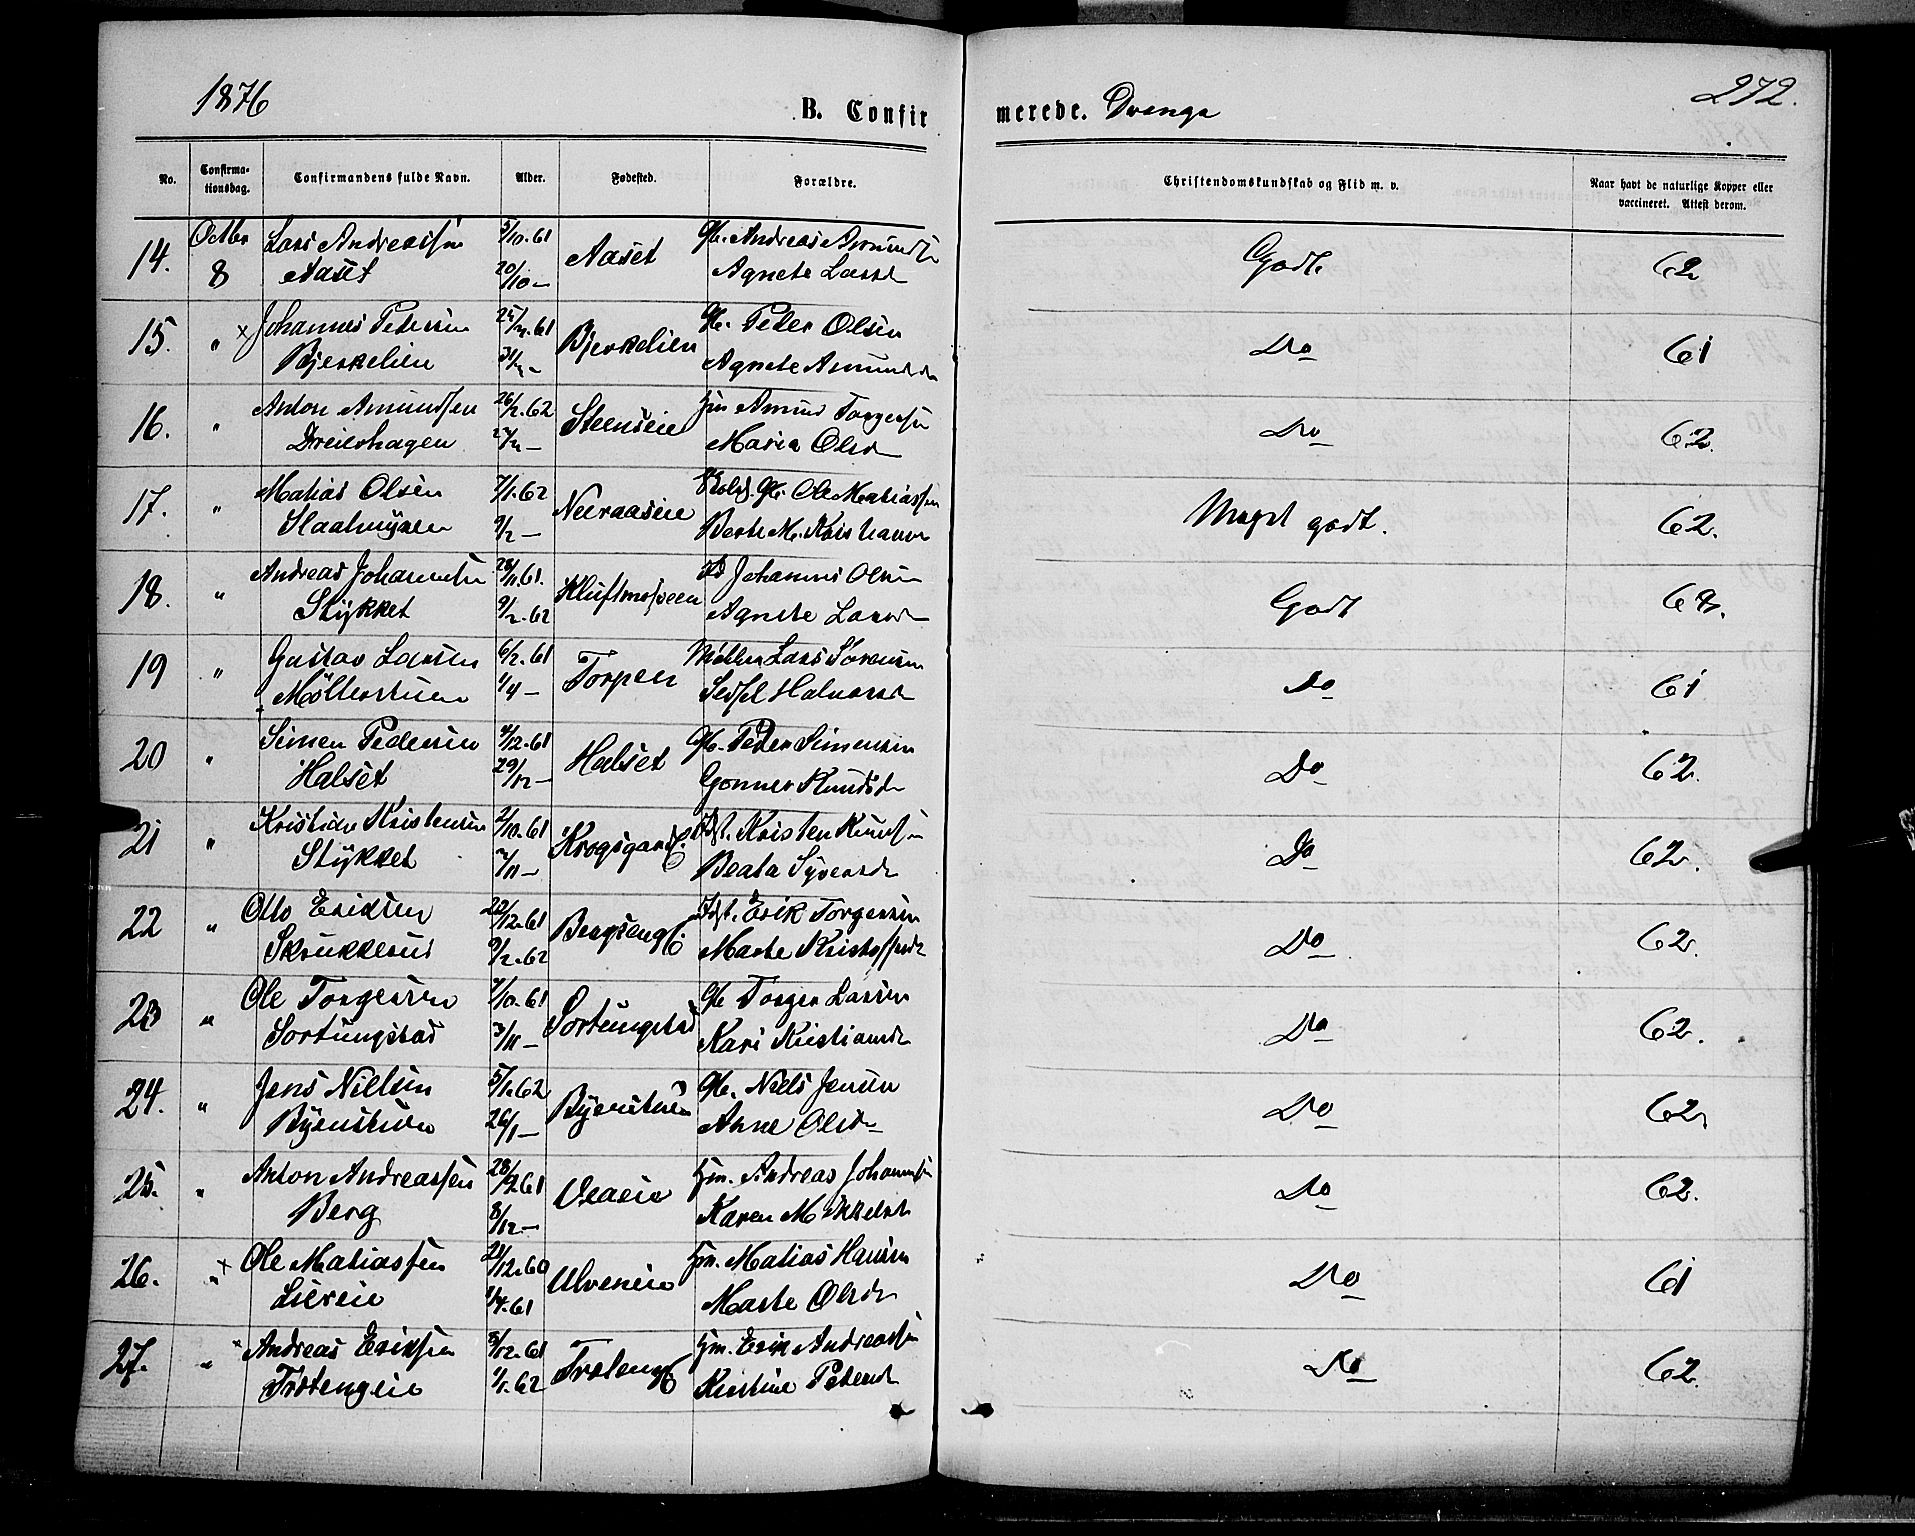 1876 B. Confirmerede. Drenge 272.
No. Confirma-tionsdag. Confirmandens fulde Navn. Alder. Fødested. Forældre. Christendomskundskab og Flid m. v. Naar havt de naturlige Kopper eller vaccineret. Attest derom.
14. Octbr Lars Andreassen 5/10.61 Aaset Gbr. Andreas Amunds Godt 62
8 Aaset 20/10 – Agnete Larsd
15. " × Johannes Pedersen 61 Bjerkelien Gbr. Peder Olsen Do 61
Bjerkelien Agnete Amundsd
16. " Anton Amundsen 26/1.62 Steenseie Hm Amund Torgersen Do 62
Dreiershagen – Maria Olsd
17. " Matias Olsen 7/1.62 Neeraaseie Gbr. Ole Matiassen Meget godt. 62.
9/2 – Berte M. Kristiansd
18. " Andreas Johannesen 28/11.61. Johannes Olsen Godt 62.
Stykket 9/2.62 Agnete Larsd
19 " Gustav Larsen 6/2.61 Torpen Møller Lars Sørensen Do 61
Møllerstuen 1/4 – Sidsel Halvorsd
20 " Simen Pedersen 4/12.61 Halset Gbr. Peder Simensen Do 62.
Halset 29/12 – Gonner Knudsd
21 " Kristian Kristensen 2/10.61 Krogsgard E. Kristen Knudsen Do 62.
Stykket /11 – Beata Syversd
22 " Otto Eriksen 22/12.61 Bergseng E. Inds. Erik Torgersen Do 62.
Skrukkerud 9/2.62 Marte Kristoffersd
23 " Ole Torgersen /10.61 Sortungstad Gbr Torger Larsen Do 62.
Sortungstad 3/11 – Kari Kristiansd
24. " Jens Nielsen 5/1.62 Byenstuen Gbr. Niels Jensen Do 62
Byenstuen 26/1 – Anne Olsd
25. " Anton Andreassen 61 Hm. Andreas Johannesen Do 62.
Berg 8/12 – Karen Mikkelsd
26. " × Ole Matiassen 60 Ulveneie Hm. Matias Hansen Do 61
Liereie 1/4.61 Marte Olsd
27. " × Andreas Eriksen 8/12.61 Hm. Erik Andreassen Do 62.
1/1.62 Kristine Pedersd